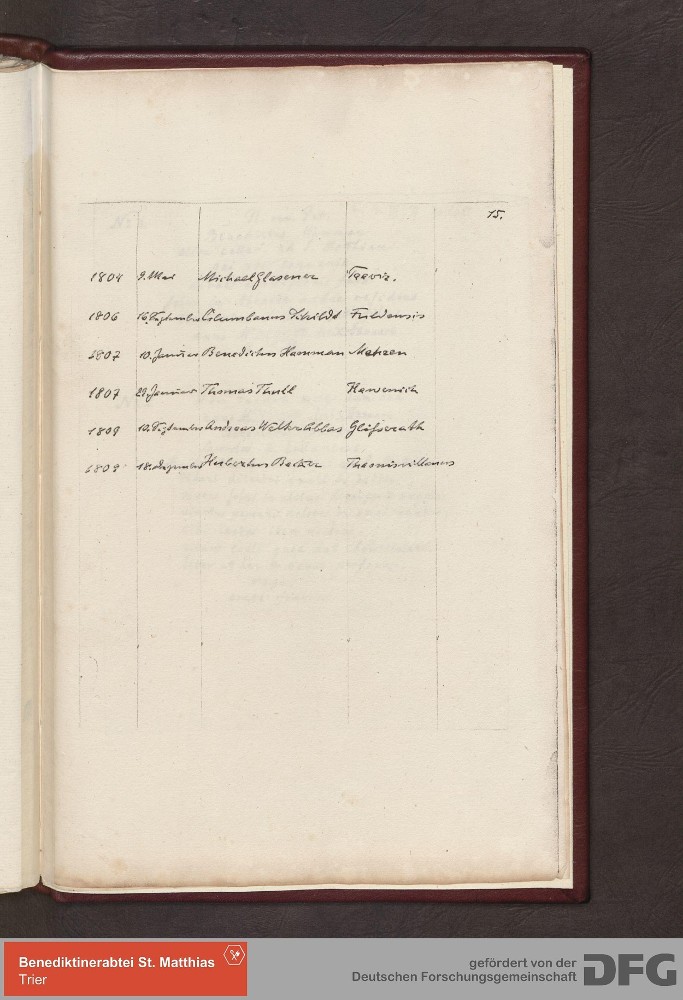 15.
1804 9. Mai Michael Glasener Trevir.
1806 16. September Columbanus Schildt Fuldensis
1807 10. Januar Benedictus Hamman Metzen
1807 29. Januar Thomas Thull Hewenich
1809 10. September Andreas Welter Abbas
1809 18. Dezember Hubertus Becker Theonisvillanus
Benediktinerabtei St. Matthias
Trier
gefördert von der
Deutschen Forschungsgemeinschaft
DFG